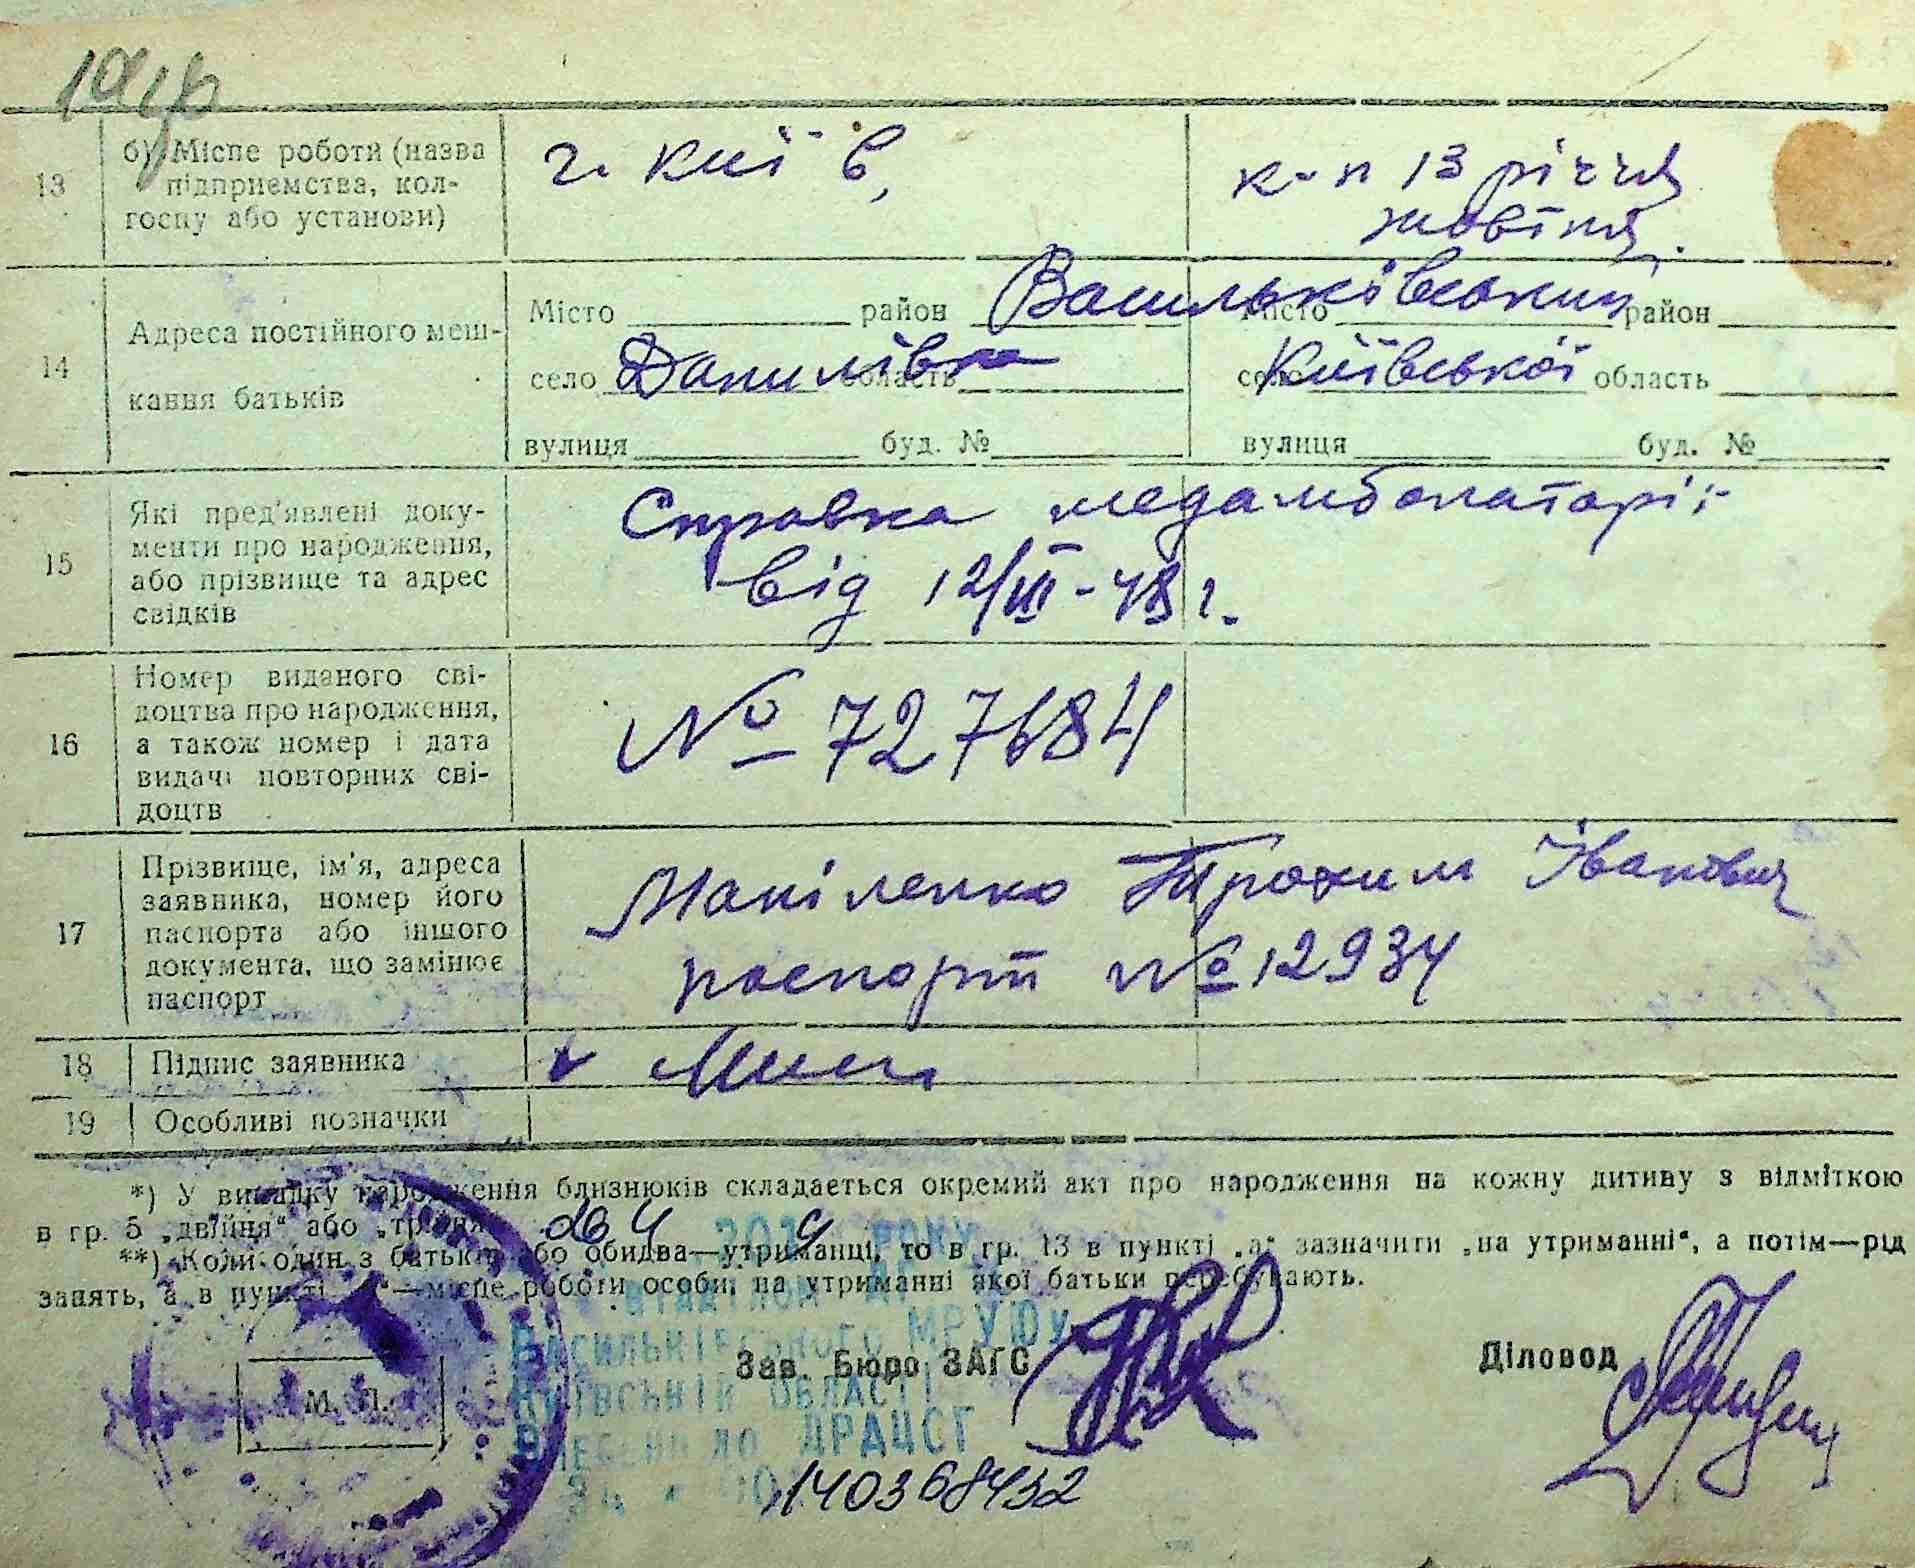 13
б) Місце роботи (назва
підприємства, кол-
госпу або установи)
г. Київ,
к-п 13 річчя
жовтня.
14
Адреса постійного меш-
кання батьків
Місто район Васильківський Місто район
село Данилівка область село Київської область
вулиця буд. № вулиця буд. №
15
Які пред'явлені доку-
менти про народження,
або прізвище та адрес
свідків
Справка медамболаторії
від 12/III-48 г.
16
Номер виданого сві-
доцтва про народження,
а також номер і дата
видачі повторних сві-
доцтв
№ 727684
17
Прізвище, ім'я, адреса
заявника, номер його
паспорта або іншого
документа, що замінює
паспорт
Трохим Іванович
паспорт № 12934
18 Підпис заявника
19 Особливі позначки
*) У випадку народження близнюків складається окремий акт про народження на кожну дитину з відміткою
в гр. 5 „двійня“ або „трійня“
**) Коли один з батьків або обидва—утриманці, то в гр. 13 в пункті „а“ зазначити „на утриманні“, а потім—рід
занять, а в пункті —місце роботи особи, на утриманні якої батьки перебувають.
РОКУ
Васильківського МРУЮ
Київській області
Внесено до ДРАЦСГ
Зав. Бюро ЗАГС
Діловод
М. П.
140368432